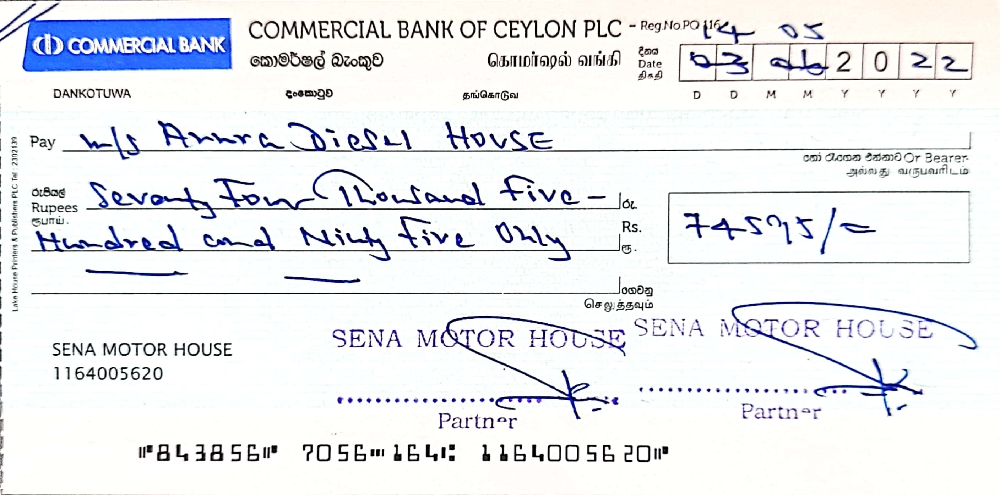 COMMERCIAL BANK
COMMERCIAL BANK OF CEYLON PLC - Reg.No.PQ 116
කොමර්ෂල් බැංකුව கொமர்ஷல் வங்கி
14 05
දිනය
Date
திகதி
03 06 2 0 2 2
D D M M Y Y Y Y
DANKOTUWA දංකොටුව தங்கொடுவ
Pay m/s Anura Diesel House
හෝ රැගෙන එන්නාට Or Bearer
அல்லது வருபவரிடம்
රුපියල්
Rupees
ரூபாய்.
Seventy Four Thousand Five -
Hundred and Ninty Five Only
රු.
Rs.
ரூ.
74595/=
ගෙවනු
செலுத்தவும்
Lake House Printers & Publishers PLC Tel : 2102139
SENA MOTOR HOUSE
1164005620
SENA MOTOR HOUSE
Partner
SENA MOTOR HOUSE
Partner
⑈843856⑈ 7056⑉164⑆ 1164005620⑈